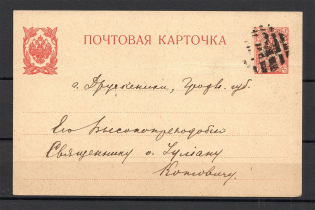 ПОЧТОВАЯ КАРТОЧКА
г. Друскеники, Гродн. губ.
Его Высокопреподобію
Священнику о. Гуліану
Котовичу.